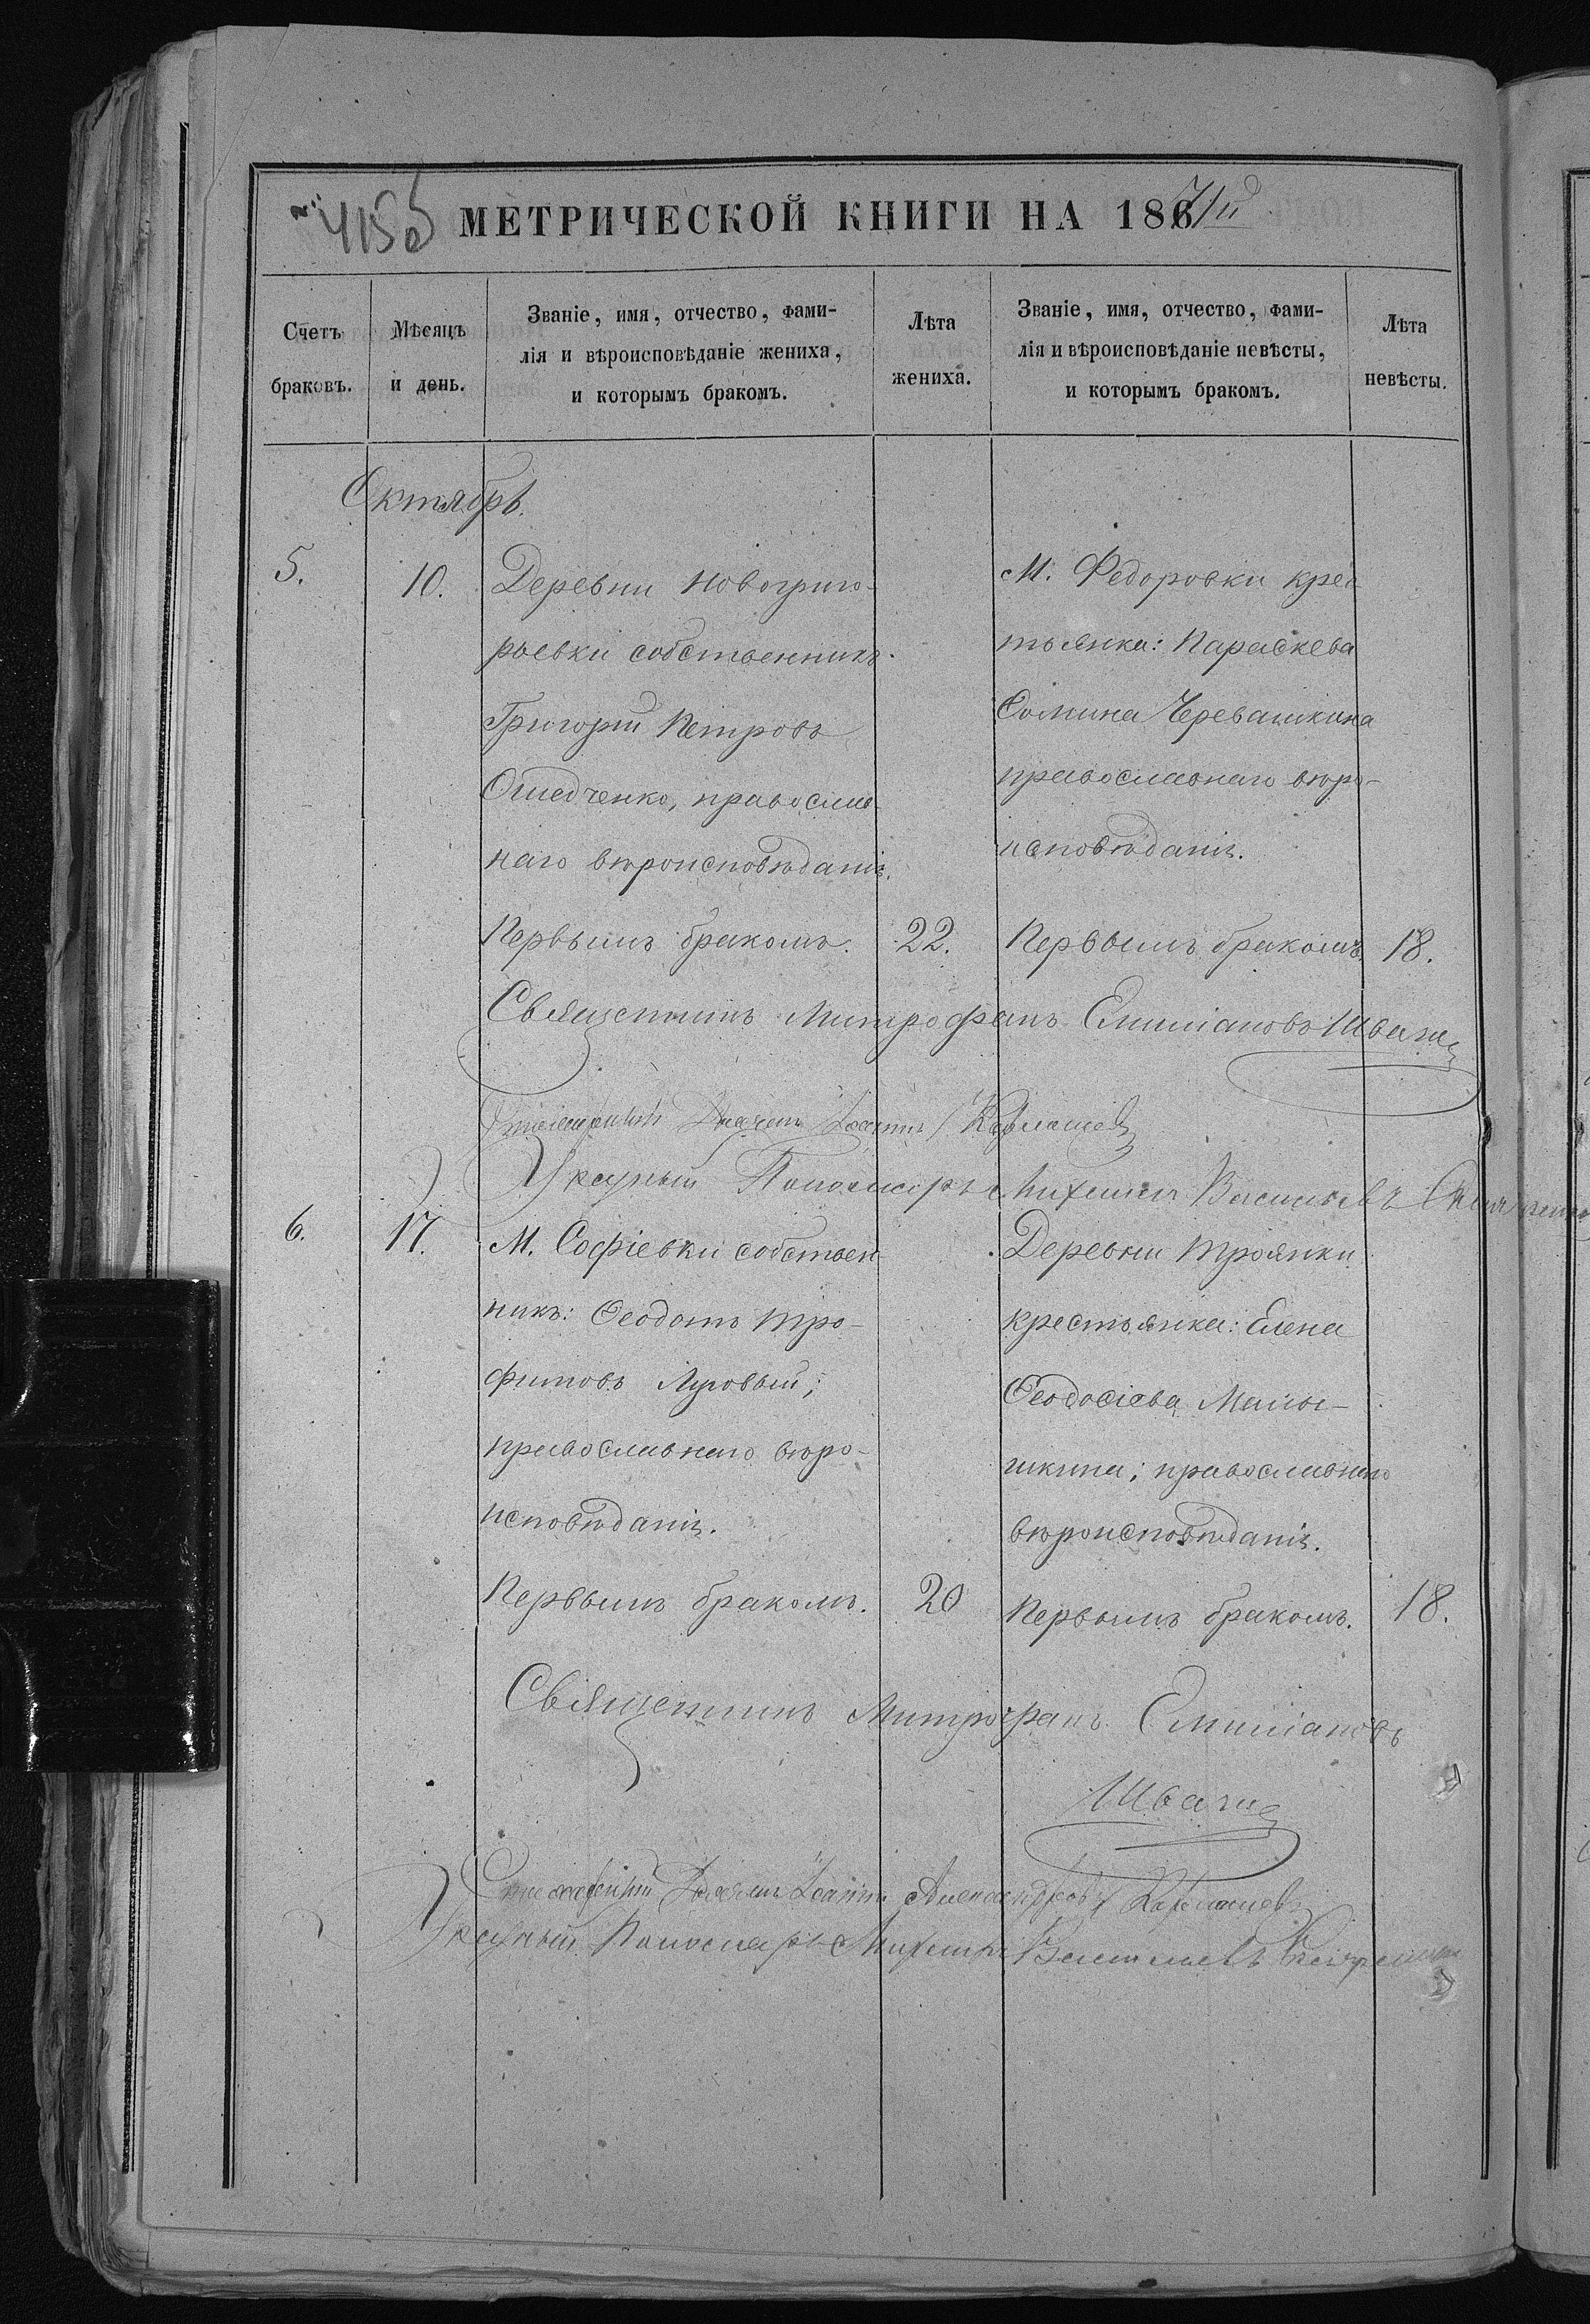 415об
МЕТРИЧЕСКОЙ КНИГИ НА 1871й
Счетъ браковъ.
Мѣсяцъ и день.
Званіе, имя, отчество, фами-
лія и вѣроисповѣданіе жениха,
и которымъ бракомъ.
Лѣта жениха.
Званіе, имя, отчество, фами-
лія и вѣроисповѣданіе невѣсты,
и которымъ бракомъ.
Лѣта невѣсты.
Октябрь.
5.
10.
Деревни Новогриго-
рьевки собственникъ
Григорій Петровъ
Ошедченко, православ-
наго вѣроисповѣданія.
Первымъ бракомъ.
22.
М. Федоровки крес-
тьянка: Параскева
Ѳомина Черевашкина
православнаго вѣро-
исповѣданія.
Первымъ бракомъ.
18.
Священникъ Митрофанъ Емиліановъ Швачъ
Діаконъ Іоаннъ
Указный Пономарь Михаилъ Васильевъ
6.
17.
М. Софіевки собствен-
никъ: Ѳеодотъ Тро-
фимовъ Луговый;
православнаго вѣро-
исповѣданія.
Первымъ бракомъ.
20
Деревни Троянки
крестьянка: Елена
Ѳеодосіева
православнаго
вѣроисповѣданія.
Первымъ бракомъ.
18.
Священникъ Митрофанъ Емиліановъ
Швачъ
Діаконъ Іоаннъ Александровъ
Указный Пономарь Михаилъ Васильевъ